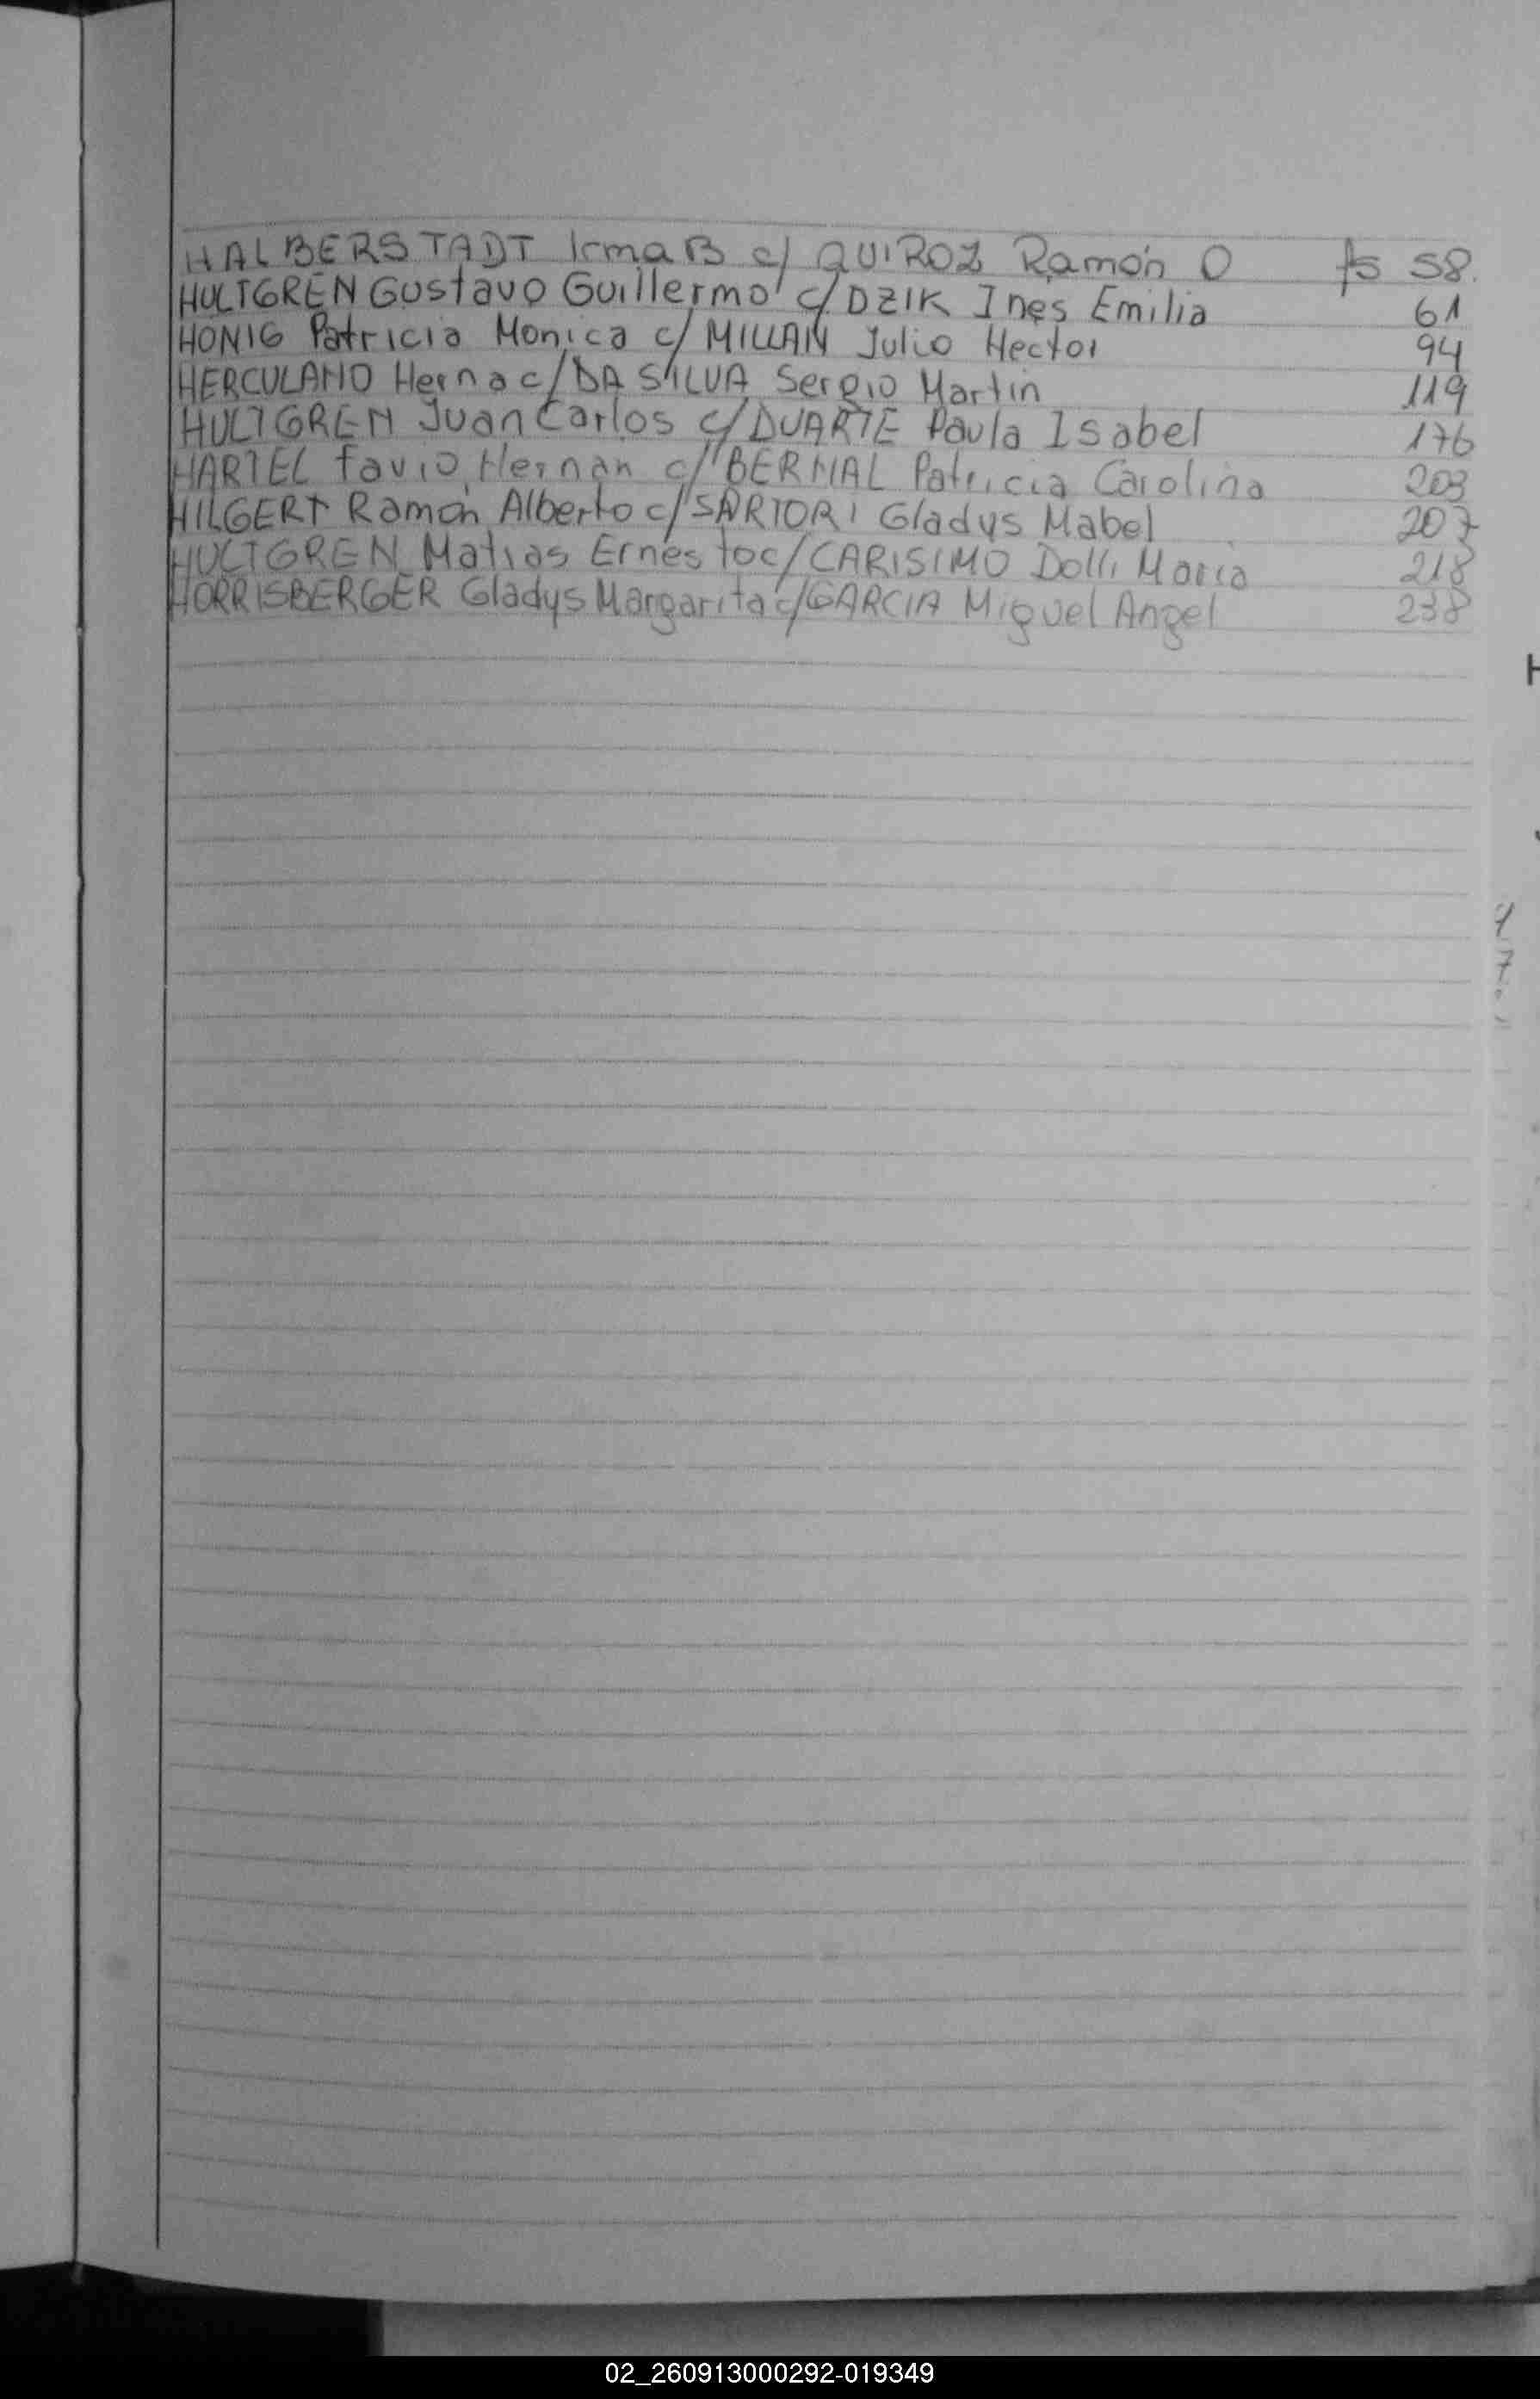 HALBERSTADT Irma B c/ QUIROZ Ramón O fs 58.
HULTGREN Gustavo Guillermo c/ DZIK Ines Emilia 61
HONIG Patricia Monica c/ MILLAN Julio Hector 94
HERCULANO Herna c/ DA SILVA Sergio Martin 119
HULTGREN Juan Carlos c/ DUARTE Paula Isabel 176
HARTEL Favio Hernan c/ BERNAL Patricia Carolina 203
HILGERT Ramón Alberto c/ SARTORI Gladys Mabel 207
HULTGREN Matias Ernesto c/ CARISIMO Dolli Maria 218
HORRISBERGER Gladys Margarita c/ GARCIA Miguel Angel 238
H
7
02_260913000292-019349